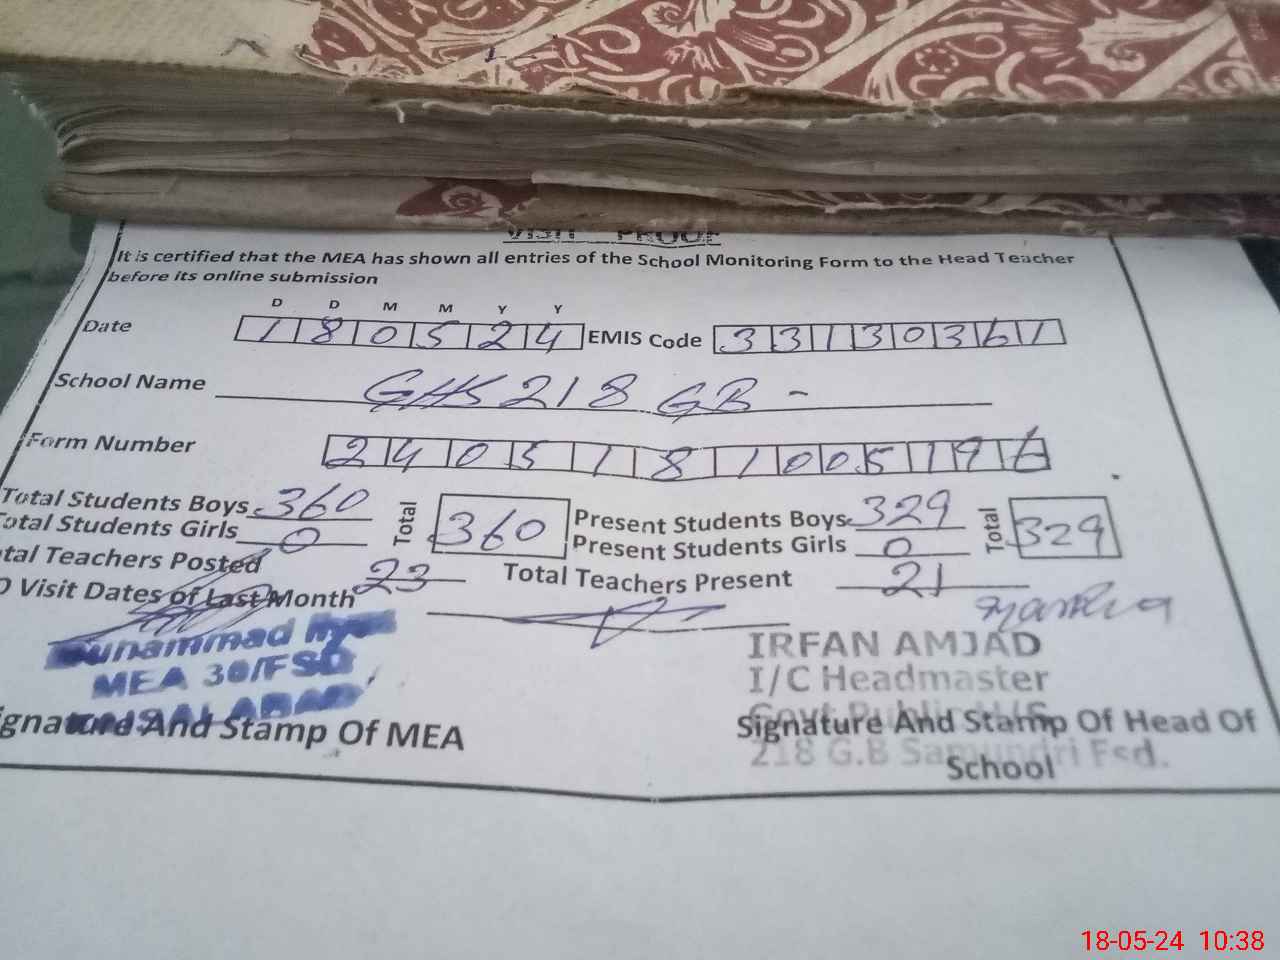 VISIT PROOF
It is certified that the MEA has shown all entries of the School Monitoring Form to the Head Teacher
before its online submission
D D M M Y Y
Date 180524 EMIS Code 33130361
School Name GHS 218 GB -
Form Number 2405181005196
Total Students Boys 360 Total 360 Present Students Boys 329 Total 329
Total Students Girls 0 Present Students Girls 0
tal Teachers Posted 23 Total Teachers Present 21
O Visit Dates of Last Month
Muhammad
MEA 30/FSD
FAISALABAD
IRFAN AMJAD
I/C Headmaster
Govt Public H/S
218 G.B Samundri Fsd.
ignature And Stamp Of MEA
Signature And Stamp Of Head Of
School
18-05-24 10:38